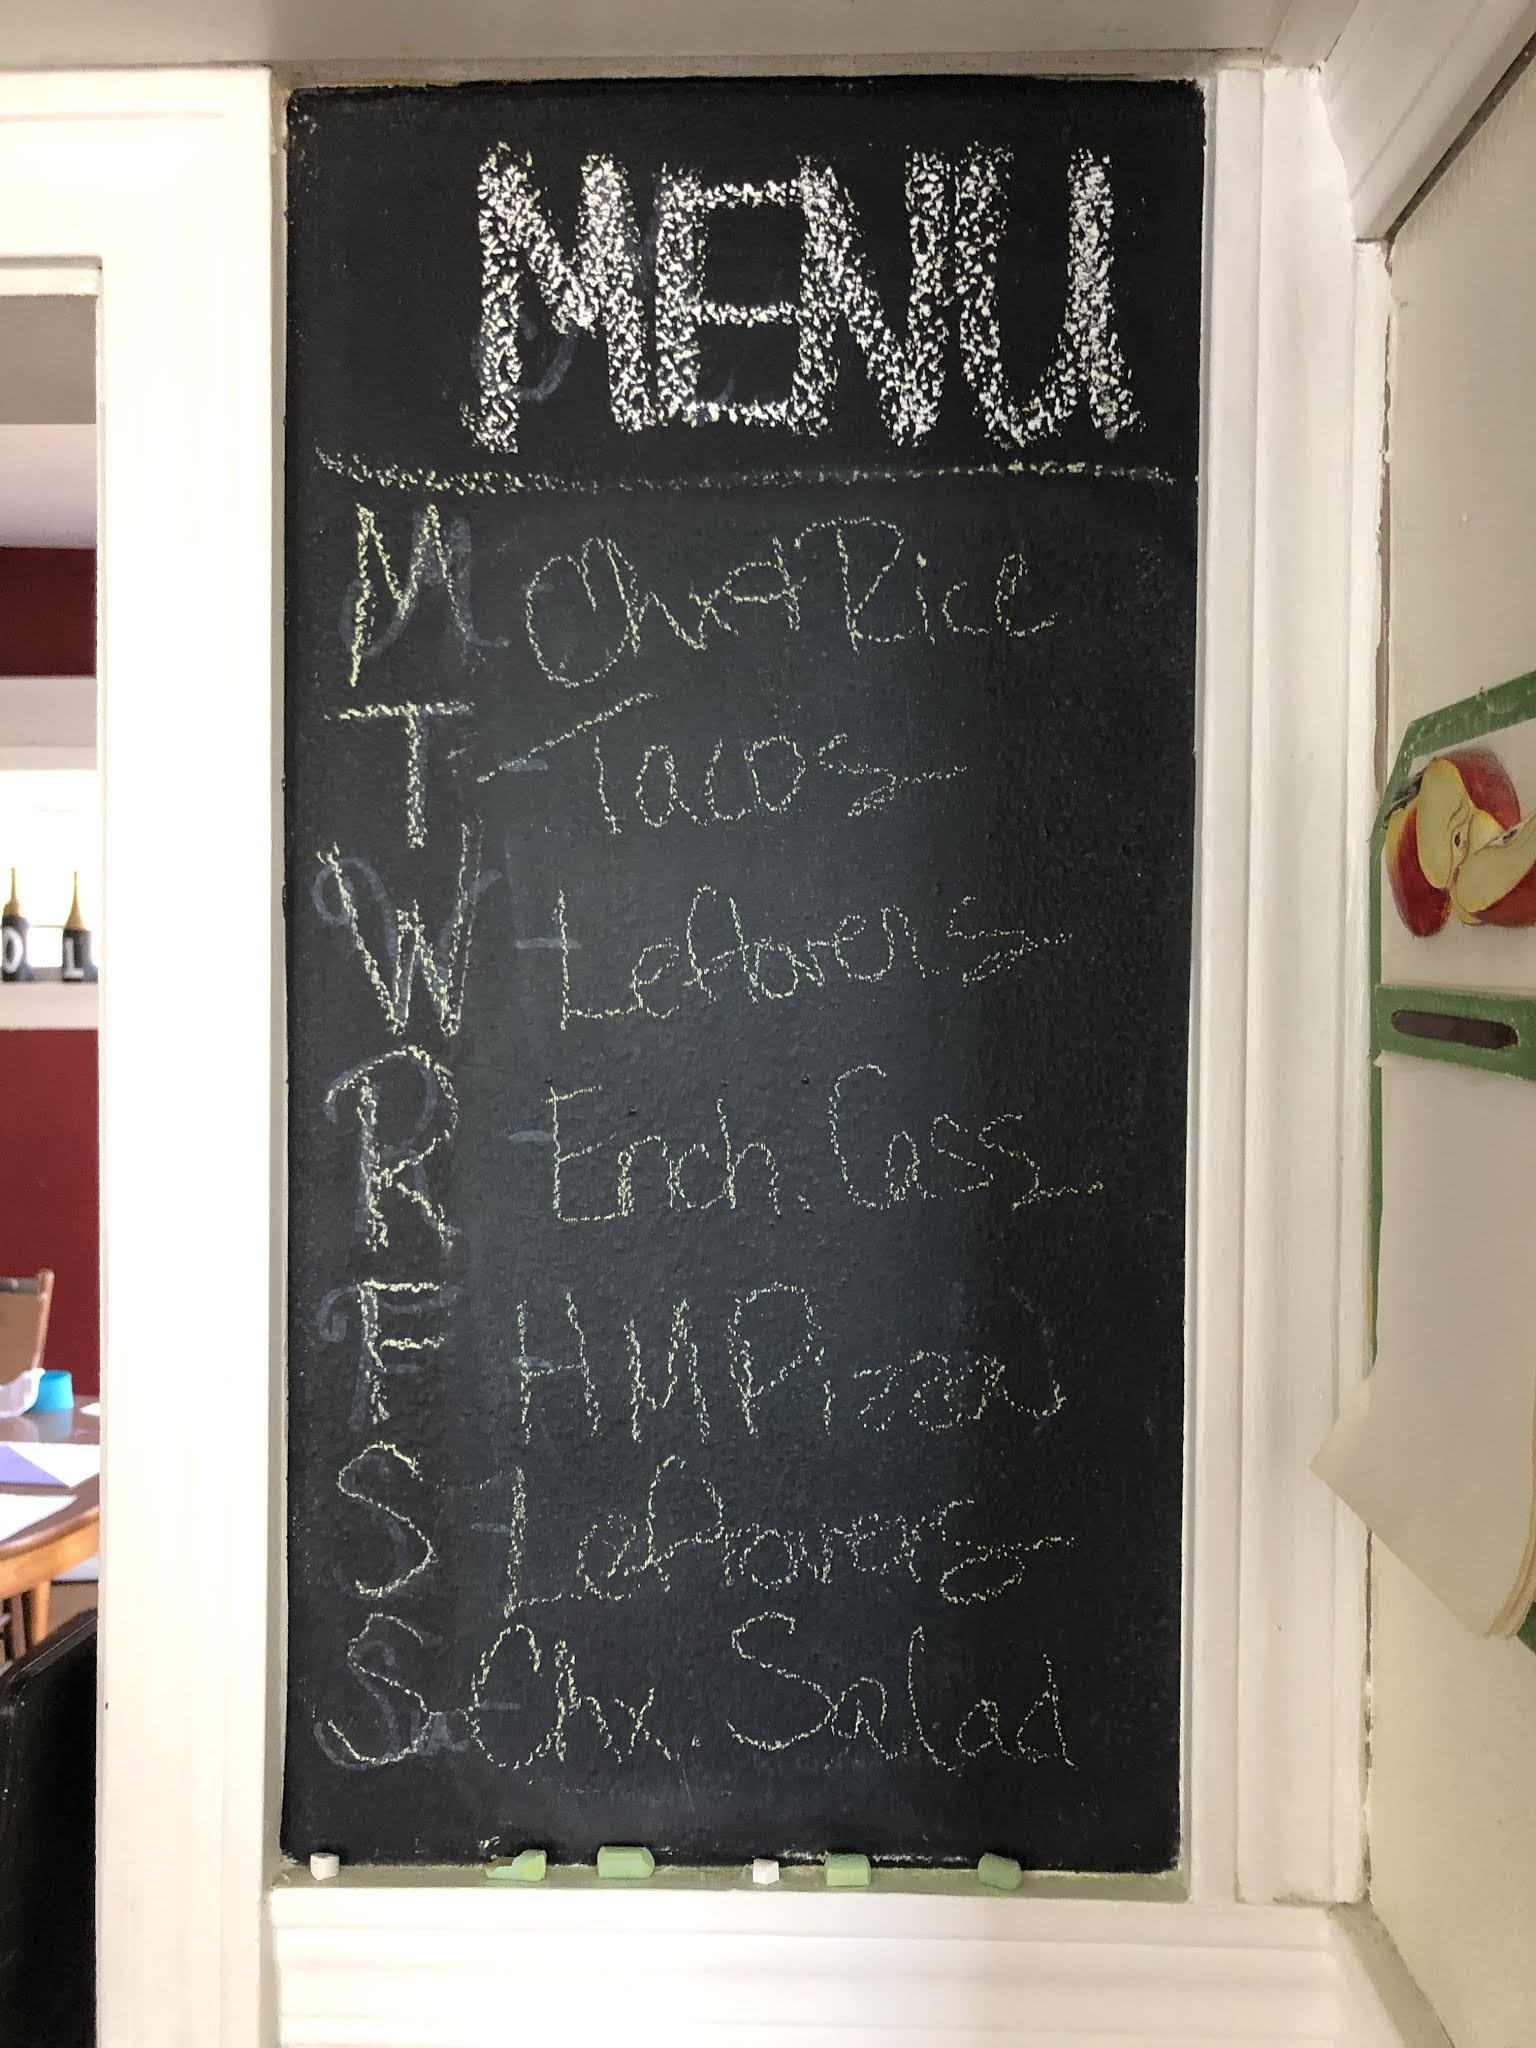 MENU
M Chx+Rice
T - Tacos
W - Leftovers
R - Ench. Cass
F - HM Pizza
S - Leftovers
S - Chx. Salad
O L